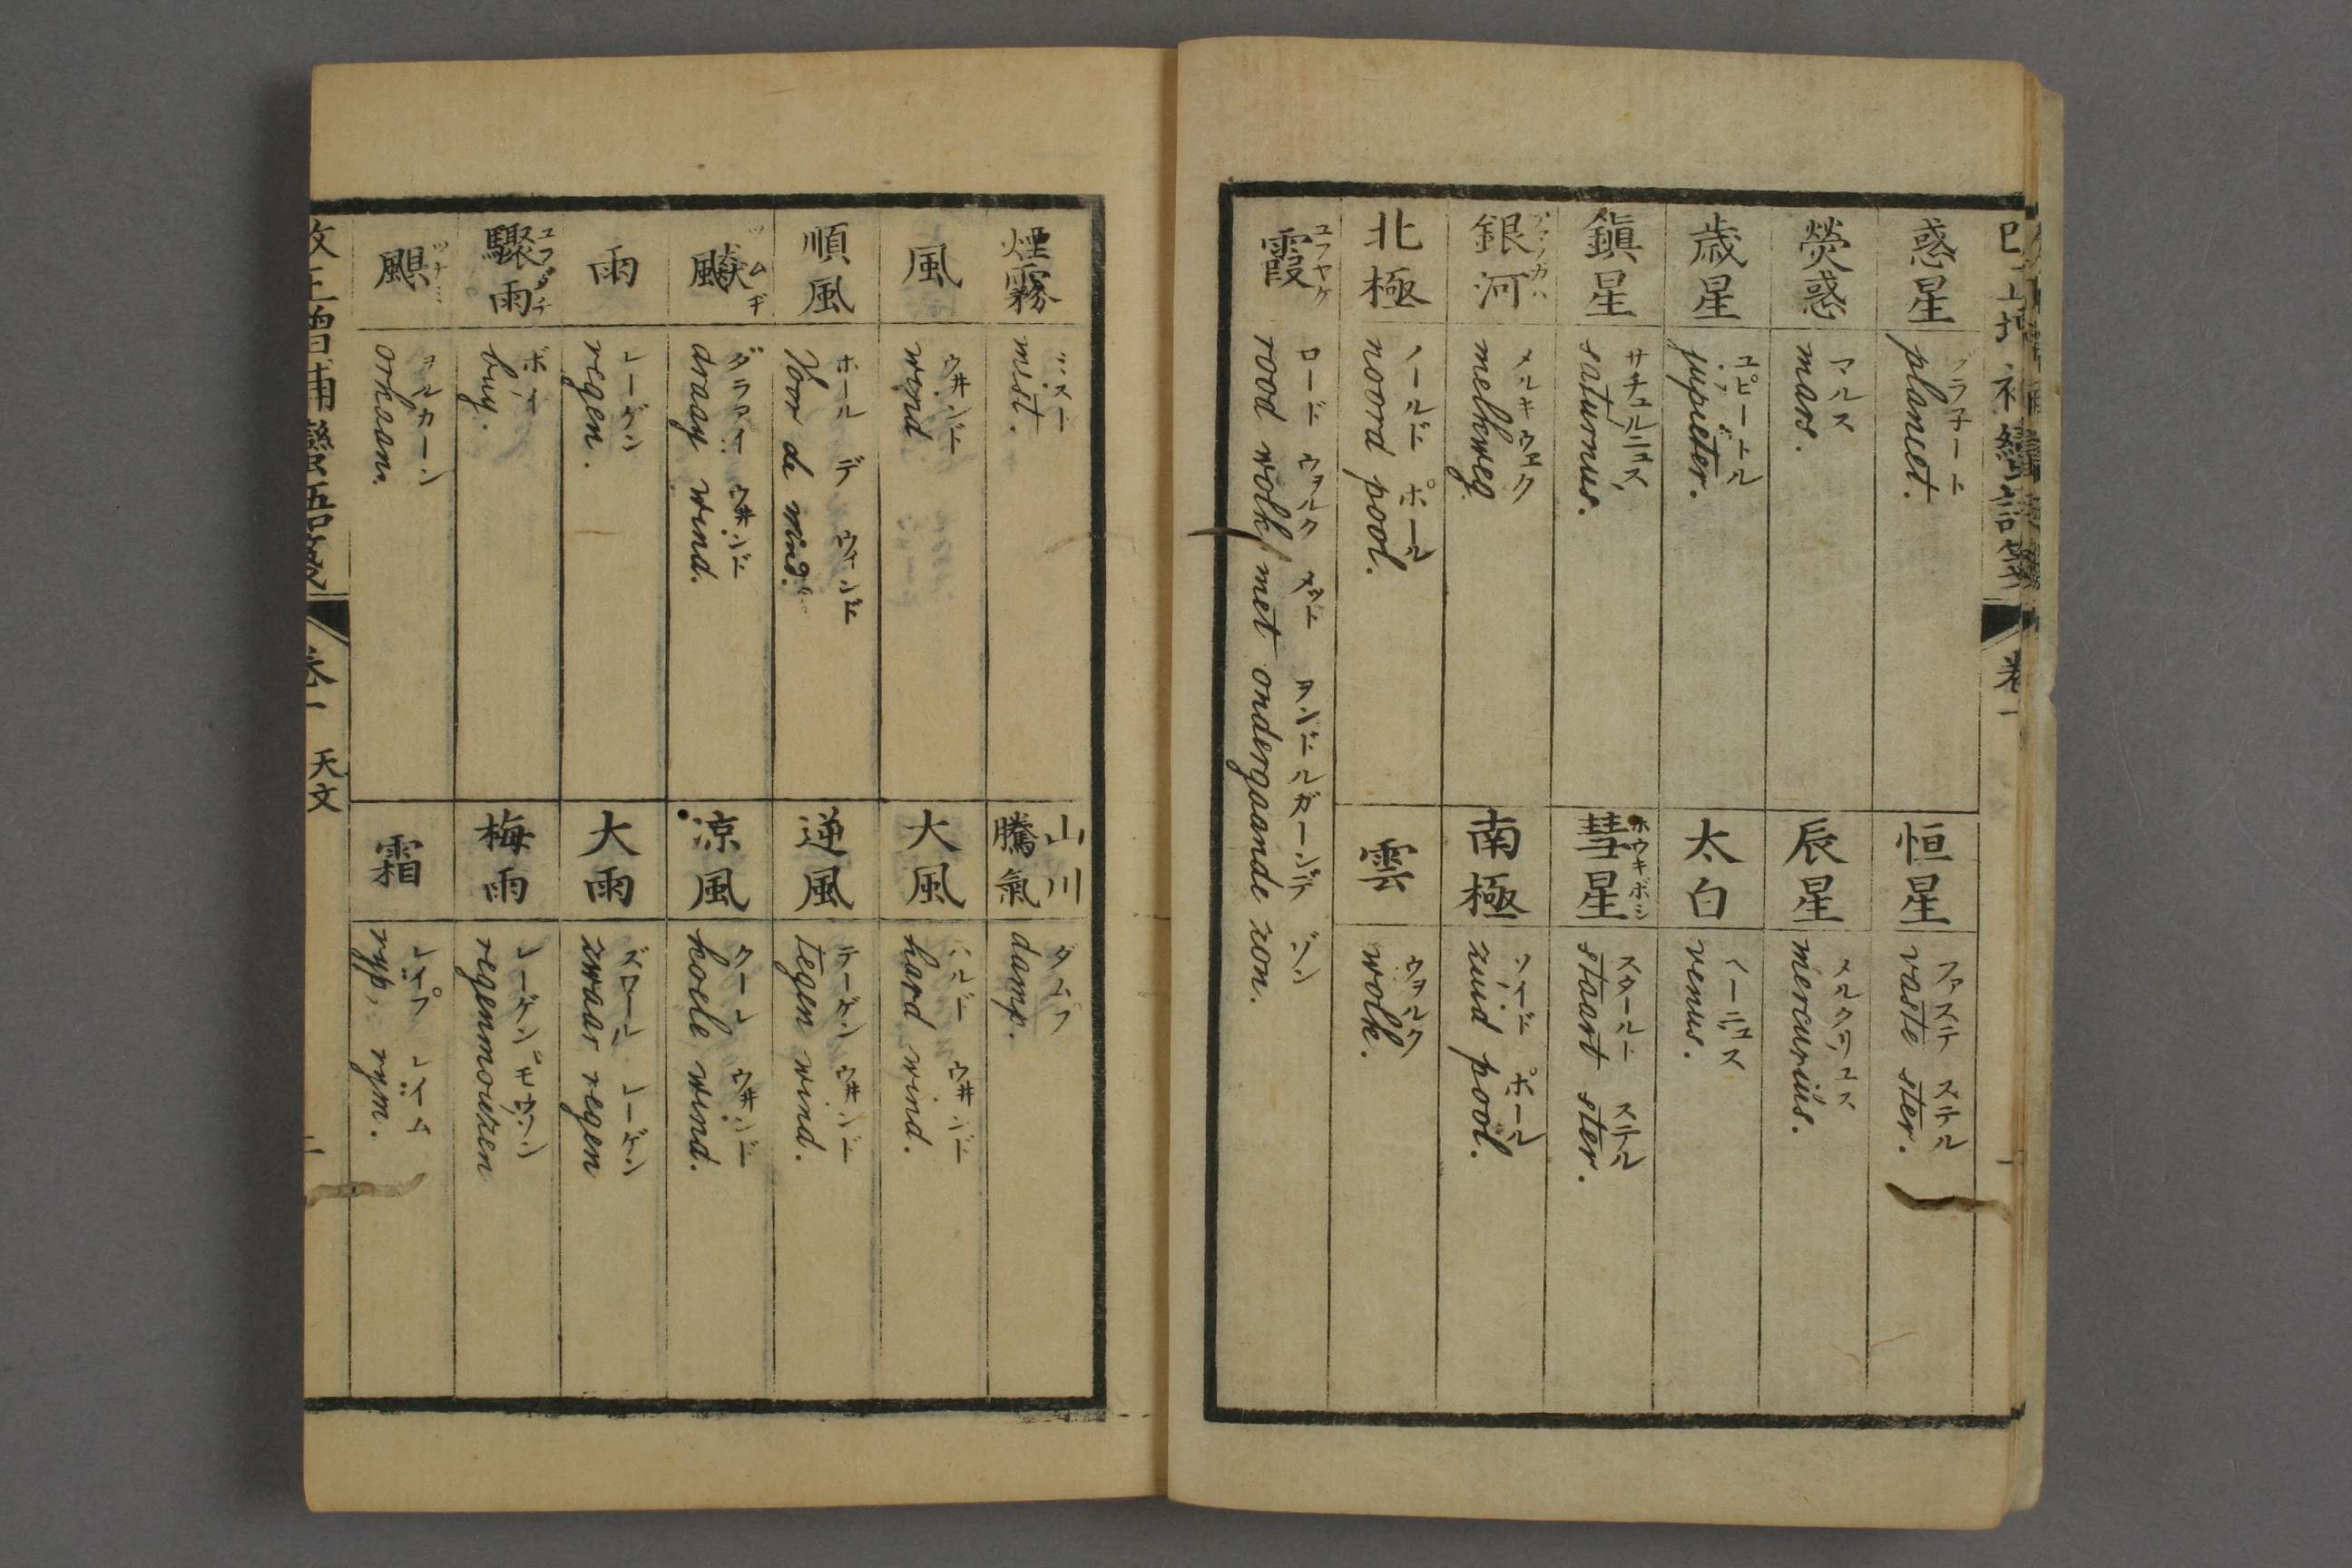 惑星
プラネート
planeet.
恒星
ファステ ステル
vaste ster.
熒惑
マルス
mars.
辰星
メルクリユス
mercurius.
歳星
ユピートル
jupieter.
太白
venus.
鎮星
サチュルニュス
saturnus.
彗星
ホウキボシ
スタールト ステル
staart ster.
銀河
メルキウェク
melkweg
南極
ソイド ポール
zuid pool.
北極
ノールド ポール
noord pool.
雲
ウヲルク
wolk.
霞
ユフヤケ
ロード ウヲルク メット ヲンドルガーンデ ゾン
rood wolk met ondergaande zon.
煙霧
ミスト
mist.
山川騰氣
ダムプ
damp.
風
ウ井ンド
wind
大風
ハルド ウ井ンド
hard wind.
順風
ホール デ ウィンド
Voor de wind.
逆風
テーゲン ウ井ンド
tegen wind.
飈
ツムヂ
ダラアイ ウ井ンド
draay wind.
凉風
クーレ ウ井ンド
koele wind.
雨
レーゲン
regen.
大雨
ズワール レーゲン
zwaar regen
驟雨
ユフダチ
ボイ
buy.
梅雨
レーゲンモウソン
regenmouzen
颶
ヲルカーン
orkaan.
霜
レイプ レイム
ryp, rym.
改正増補蠻語箋 卷一 天文